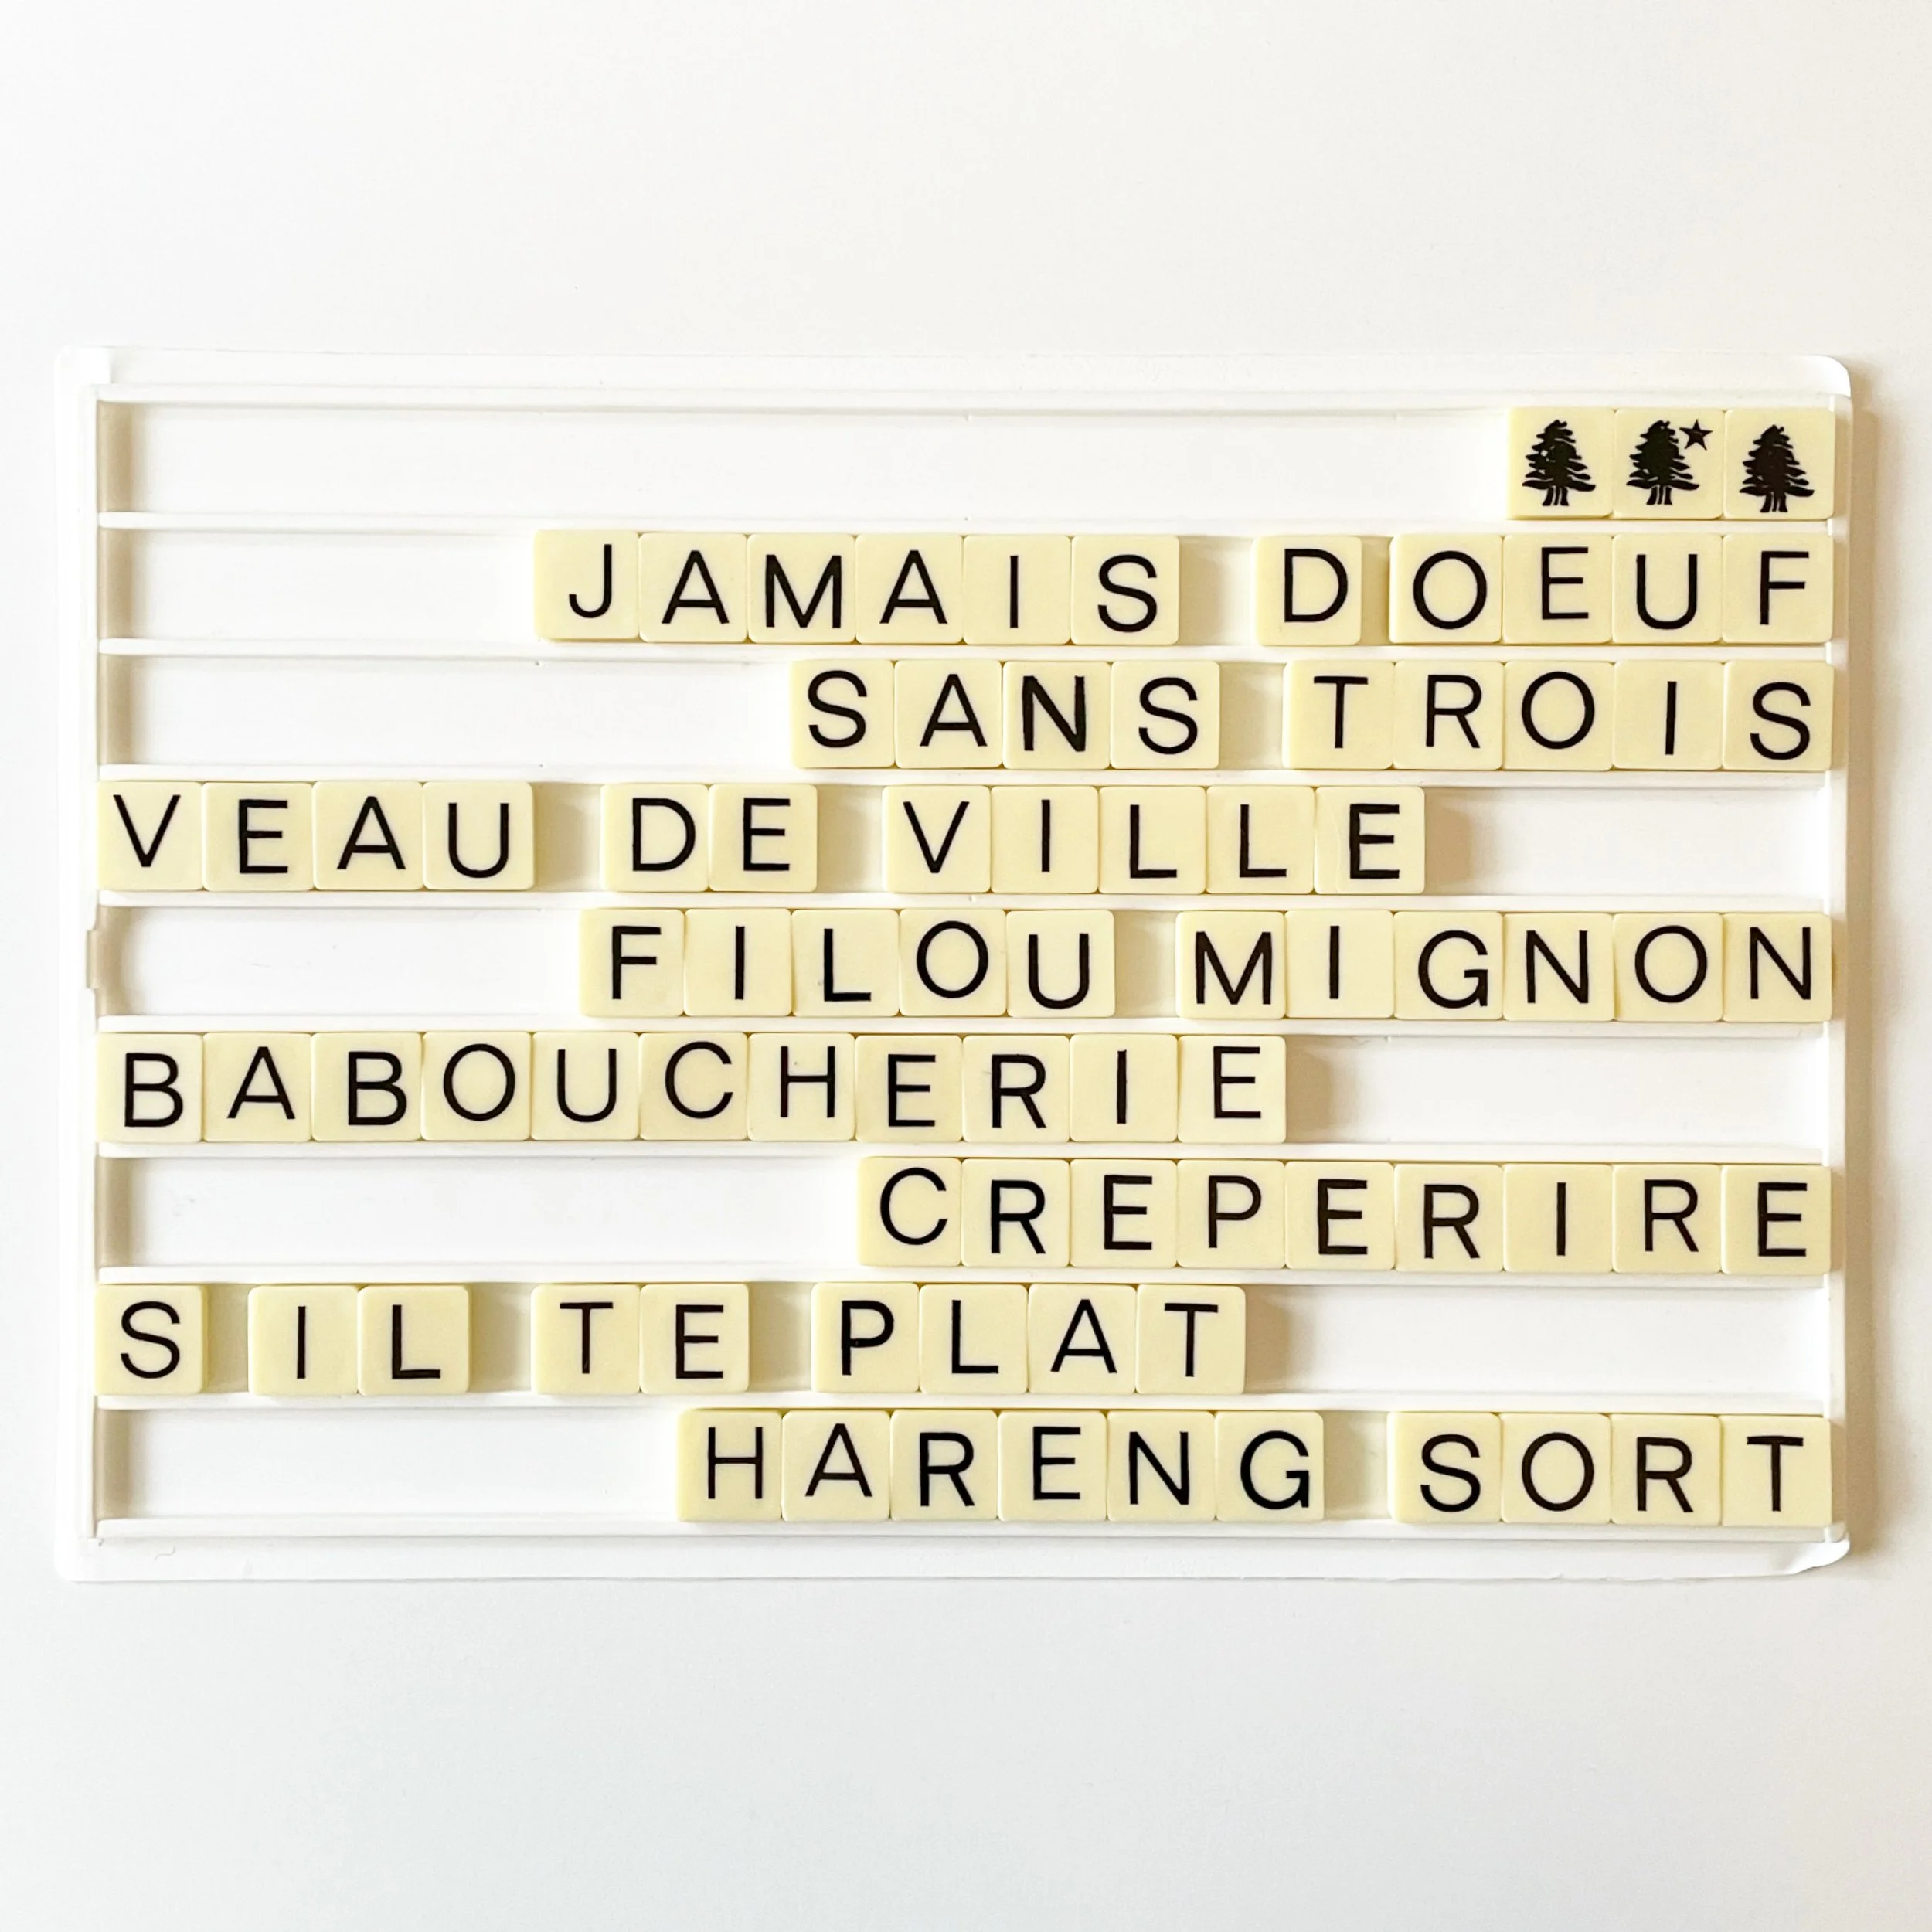 JAMAIS D OEUF
SANS TROIS
VEAU DE VILLE
FILOU MIGNON
BABOUCHERIE
CREPERIRE
S IL TE PLAT
HARENG SORT